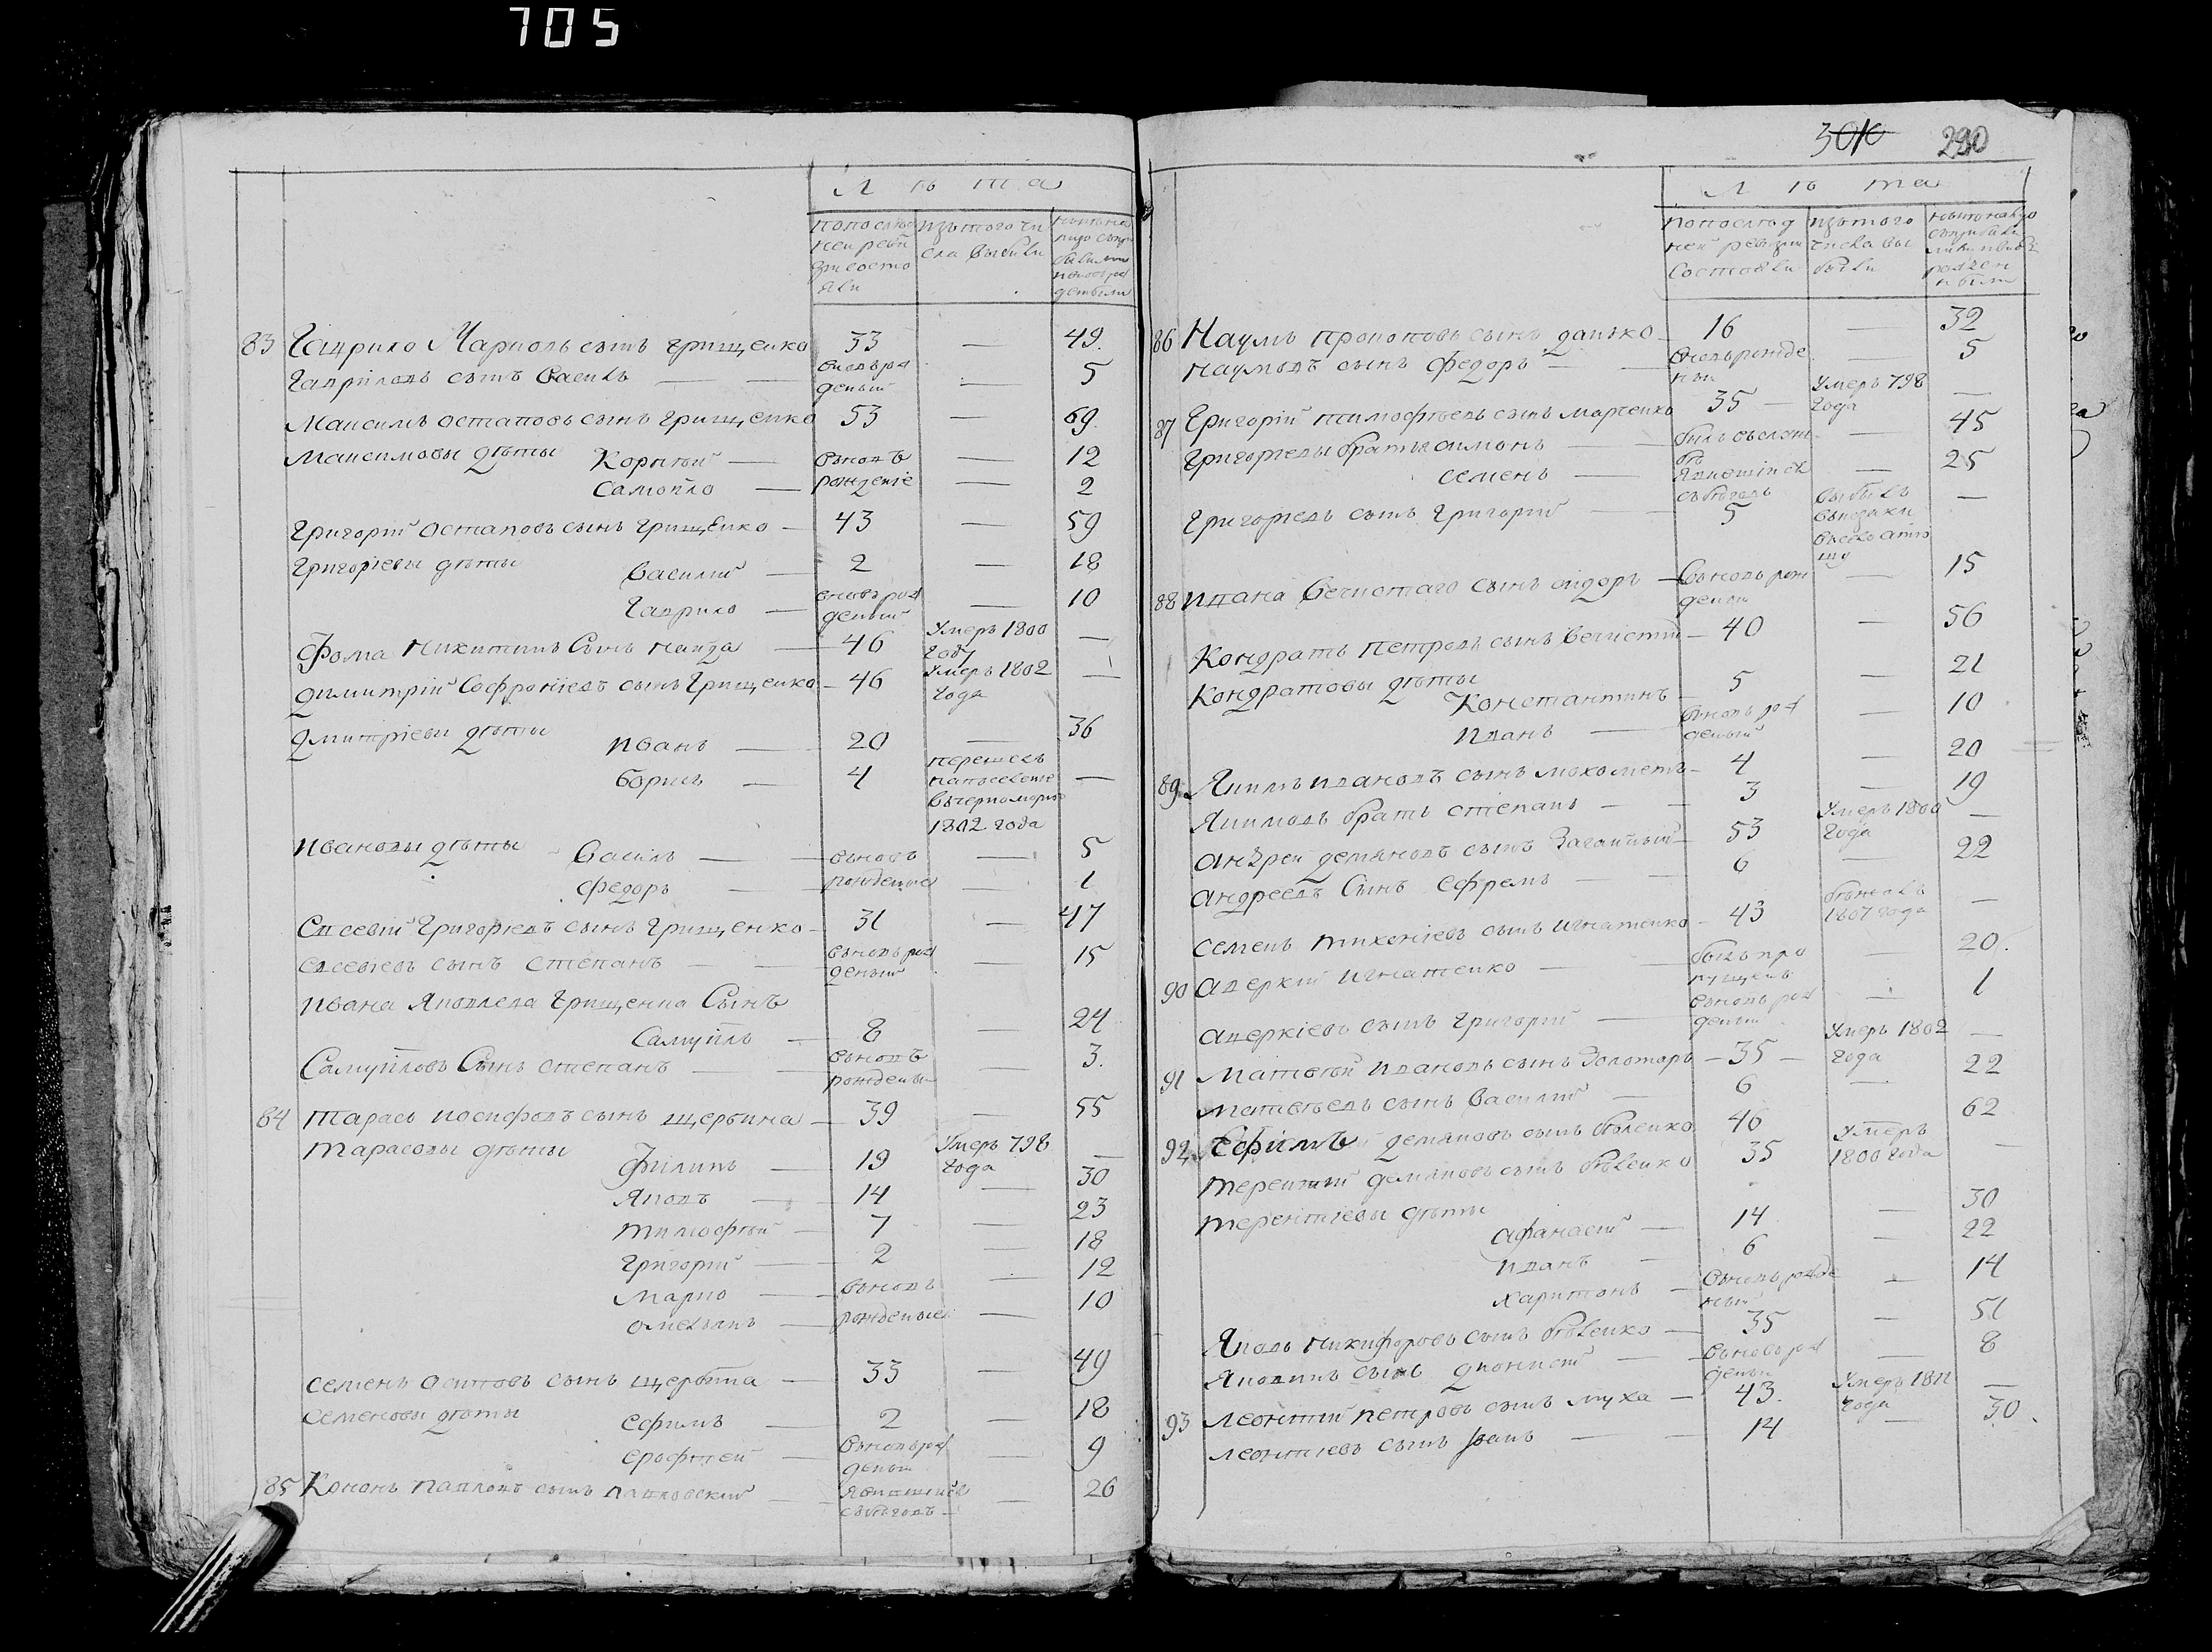 705
Лѣта
по после
ней реви
зи состо
яли
изътого чи
сла выбыли
83 Гаврило Марковъ сынъ Грищенко 33 — 49.
Гавриловъ сынъ Василь — вновьрож — 5
деный
Максимъ Остаповъ сынъ Грищенко 53 — 69.
Максимовы дѣты Корнѣй — вьновь — 12
Самойло — рождение — 2
Григорій Остаповъ сынъ Грищенко — 43 — 59
Григоріевы дѣты Василий — 2 — 18
Гаврило — вновьрож — 10
деный
Фома Никитинъ сынъ Найда — 46 Умеръ 1800 —
году
Димитрій Софроніевъ сынъ Грищенко — 46 Умеръ 1802 —
года
Дмитріеви дѣты Иванъ — 20 — 36
Борисъ — 4 перешелъ —
напоселение
вчерноморію
1802 года
Ивановы дѣты Василь — вьновь — 5
Федоръ — рожденые — 1
Евсевій Григоріевъ сынъ Грищенко — 31 — 47
Евсевіевъ сынъ Степанъ — вьновьрож — 15
деный
Ивана Яковлева Грищенка Сынъ
Самуйлъ — 8 — 24
Самуйловъ Сынъ Степанъ — вьновь — 3.
рожденый
84 Тарасъ Иосифовъ сынъ Щербина — 39 — 55
Тарасовы дѣты Филипъ — 19 Умеръ 798 —
года
Яковъ — 14 — 30
Тимофѣй — 7 — 23
Григорій — 2 — 18
Марко — вьновь — 12
Омельянъ — рожденые — 10
Семенъ Осиповъ сынъ Щербина — 33 — 49
Семеновы дѣты Ефимъ — 2 — 18
Ерофтей — вьновьрож — 9
деный
85 Кононъ Павловъ сынъ Павловский — явившийся — 26
сьбѣговъ
290
Лѣта
по послед
ней ревизии
состояли
изътого
числа вы
были
86 Наумъ Прокоповъ сынъ Данько — 16 — 32
Наумовъ сынъ Федоръ — вновьрожде — 5
ный
87 Григорій Тимофѣевъ сынъ Марченко 35 — Умеръ 798 —
года
Григоріевы братья Симонъ — 45
Семенъ — — 25
сьбѣговъ
Григоріевъ сынъ Григорій — 5 выбылъ —
88 Ивана Вечистаго сынъ Сидоръ — вьновь рож — 15
деный
Кондратъ Петровъ сынъ Вечистий — 40 — 56
Кондратовы дѣты
Константинъ — 5 — 21
Иванъ — вьновь рож — 10
деный
89 Якимъ Ивановъ сынъ Мохометъ — 4 — 20
Якимовъ братъ Степанъ — 3 — 19
Андрей Демяновъ сынъ Загайный — 53 Умеръ 1800 —
года
Андреевъ Сынъ Ефремъ — 6 — 22
Семенъ сынъ Игнатенко — 43 бѣжалъ —
1807 года
90 Аверкій Игнатенко — былъ про — 20.
пущенъ
Аверкіевъ сынъ Григорій — вьновь рож — 1
деный
91 Матвѣй Ивановъ сынъ Золотарь — 35 — Умеръ 1802 —
года
Матвѣевъ сынъ Василий — 6 — 22
92 Ефимъ Демяновъ сынъ Бѣленко 46 62
Терентий Демяновъ сынъ Бѣленко 35 Умеръ —
1800 года
Терентиевы дѣты
Афанасий — 14 — 30
Иванъ — 6 — 22
Харитонъ — вьновь рожде — 14
ный
Яковъ Никифоровъ сынъ Бѣленко — 35 — 51
Яковинъ сынъ Дионисий — вьновь рож — 8
деный
93 Леонтий Петровъ сынъ Муха — 43. Умеръ 1811 —
года
Леонтиевъ сынъ Иванъ — 14 — 30.